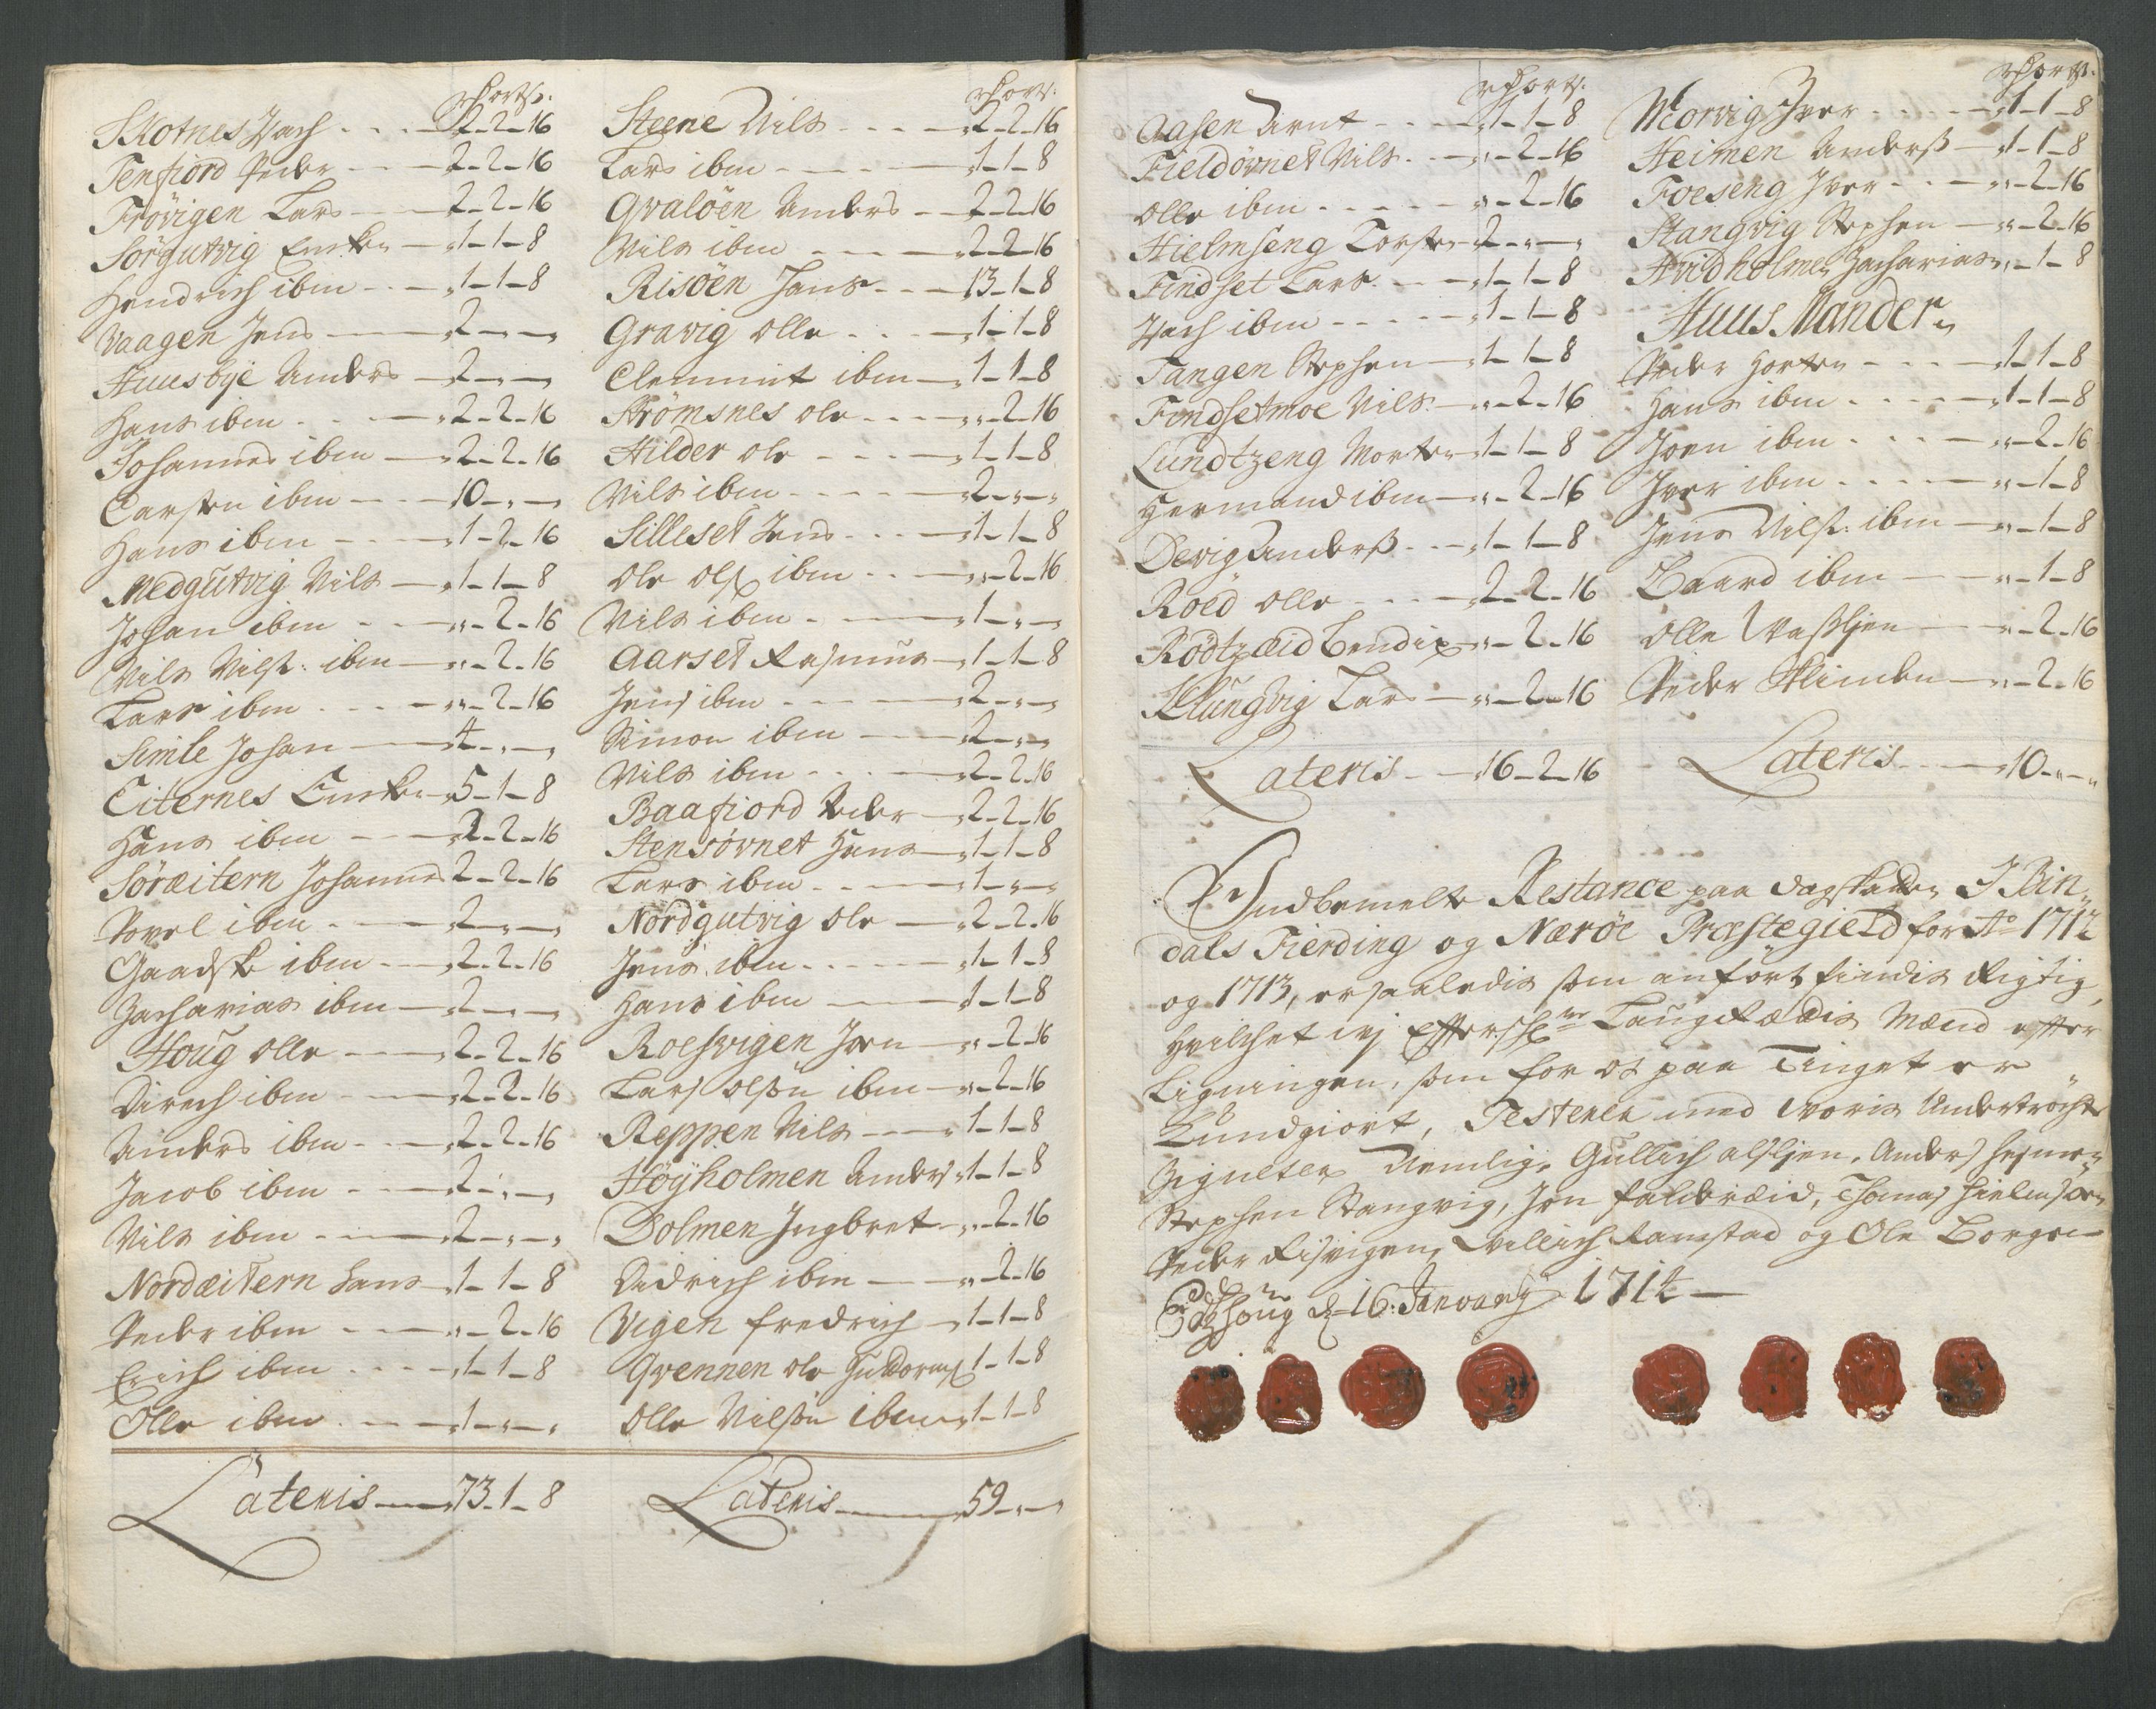 Skotnes Isach - - - 2-2-16
Tenfiord Peder - - 2-2-16
Frövigen Lars - 2-2-16
Sörgutvig Enster - 1-1-8
Hendrich ibm - - 1-1-8
Vaagen Jens - 2-"-"
Huusbye Anders - 2-"-"
Hans ibm - - 2-2-16
Johannes ibm - 2-2-16
Carsten ibm - - 10-"-"
Hans ibm - - 1-2-16
Medgutvig Nils - 1-1-8
Johan ibm - - "-2-16
Nils Nilss: ibm - "-2-16
Lars ibm - - - "-2-16
Simle Johan - 4-"-"
Eiternes - 5-1-8
Hans ibm - - 2-2-16
Söræitern Johannes 2-2-16
Povel ibm - - 2-"-"
Gaadske ibm - 2-2-16
Zacharias ibm - 2-"-"
Houg Olle - 2-2-16
Dirich ibm - 2-2-16
Anders ibm - - 2-2-16
Jacob ibm - - 2-"-"
Nils ibm - - 2-"-"
Nordæitern Hans - 1-1-8
Peder ibm - - "-2-16
Erich ibm - - - 1-1-8
Olle ibm - - 1-"-"
Lateris - 73-1-8
Steene Nils - - - 2-2-16
Lars ibm - - - 1-1-8
Qvalöen Anders - 2-2-16
Nils ibm - - 2-2-16
Risöen Hans - - 13-1-8
Gravig Olle - - 1-1-8
Clemmit ibm - 1-1-8
Strömsnes Ole - - - "-2-16
Hilder Ole - - - 1-1-8
Nils ibm - - - 2-"-"
Silleset Jens - - 1-1-8
Ole Olss ibm - - "-2-16
Nils ibm - - 1-"-"
Aarset Rasmus - 1-1-8
Jens ibm - - 2-"-"
Simon ibm - 2-"-"
Nils ibm - - - 2-2-16
Baafiord Peder - 2-2-16
Stensövnet Hans - 1-1-8
Lars ibm - - 1-"-"
Nordgutvig Ole - 2-2-16
Jens ibm - - - 1-1-8
Hans ibm - 1-1-8
Roesvigen Joen - "-2-16
Lars Olsön ibm - "-2-16
Reppen Nils - 1-1-8
Höyholmen Anders 1-1-8
Dolmen Ingbret - "-2-16
Didrich ibm - "-2-16
Vigen Fredrich - 1-1-8
Qvennen Ole 1-1-8
Olle Nilsön ibm 1-1-8
Lateris - 59-"-"
Aasen Arnt - - 1-1-8
Fieldövnet Nils - - "-2-16
Olle ibm - - - - "-2-16
Hielmseng Torsten 2-"-"
Findset Lars - - 1-1-8
Isach ibm - - - 1-1-8
Tangen Stephen - 1-1-8
Findsetmoe Nils - "-2-16
Lundtzeng Morten 1-1-8
Hermand ibm - "-2-16
Devig Anderss - - 1-1-8
Röed Olle - - 2-2-16
Rödtzæid Bendix "-2-16
Klungvig Lars - "-2-16
Lateris - 16-2-16
Morvig Iver - - - 1-1-8
Heimen Anderss - 1-1-8
Foeseng Iver - - "-2-16
Stangvig Stephen - "-2-16
Hvidholmen Zacharias "-1-8
Huus Mænder
Peder Horten - - - 1-1-8
Hans ibm - - - - 1-1-8
Joen ibm - - - "-2-16
Iver ibm - - - "-1-8
Jens Nilss: ibm - "-1-8
Baard ibm - - "-1-8
Olle - "-2-16
Peder - "-2-16
Lateris - 10-"-"
Indbemelte Restance paa Dagskatten I Bin-
dals Fierding og Næröe Præstegield for Ao 1712
og 1713, er saaledis som anfört findis Rigtig,
Hvilchet vj Effterschrne Laugrættis Mænd effter
Ligningen, som for os paa Tinget er
Kundgiort, Testerer med voris Undertröcte
Zigneter Nemlig. Gullich Alsljen, Anders Hejmen
Stephen Stangvig, Jon Falderæid, Thomas Hielmsöen
Peder Risvigen, Villich Ramstad og Ole Borgen
d 16: Janvarij 1714